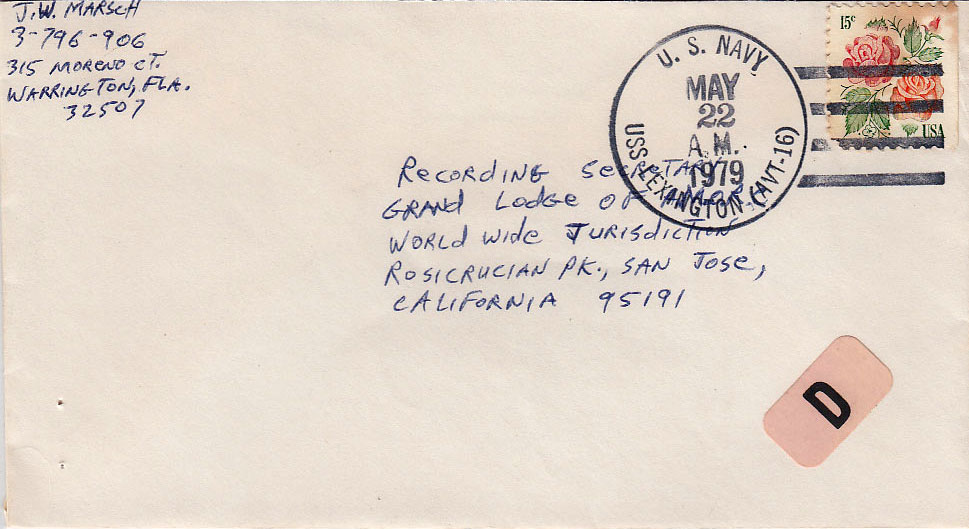 J.W. MARSCH
3-796-906
315 MORENO CT.
WARRINGTON, FLA.
32507
U. S. NAVY
MAY
22
A.M.
1979
USS LEXINGTON (AVT-16)
15c
USA
RECORDING SECRETARY
GRAND LODGE OF AMORC
WORLD WIDE JURISDICTION
ROSICRUCIAN PK., SAN JOSE,
CALIFORNIA 95191
D